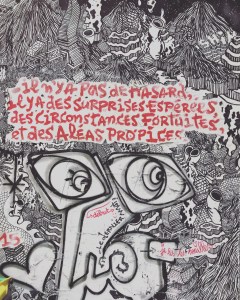 il n'y A pas de HASARD,
il y A des SURPRISES ESPÉRÉES,
des CIRCONSTANCES FORTUITES,
et des ALÉAS PROPICES